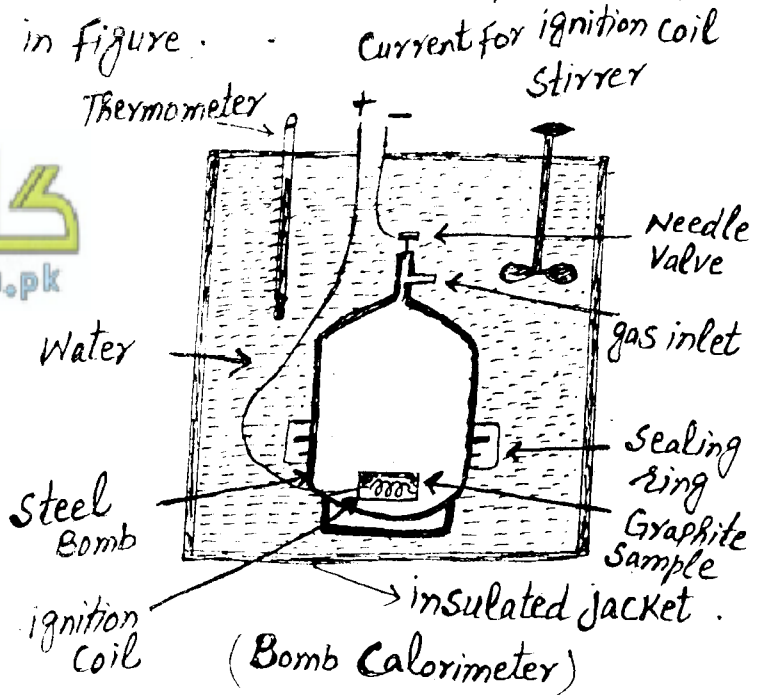 in Figure.
Current for ignition coil
Stirrer
Thermometer
+ −
گا
u.pk
Needle
Valve
Water
gas inlet
Sealing
ring
Steel
Bomb
Graphite
Sample
insulated jacket.
ignition
Coil
(Bomb Calorimeter)